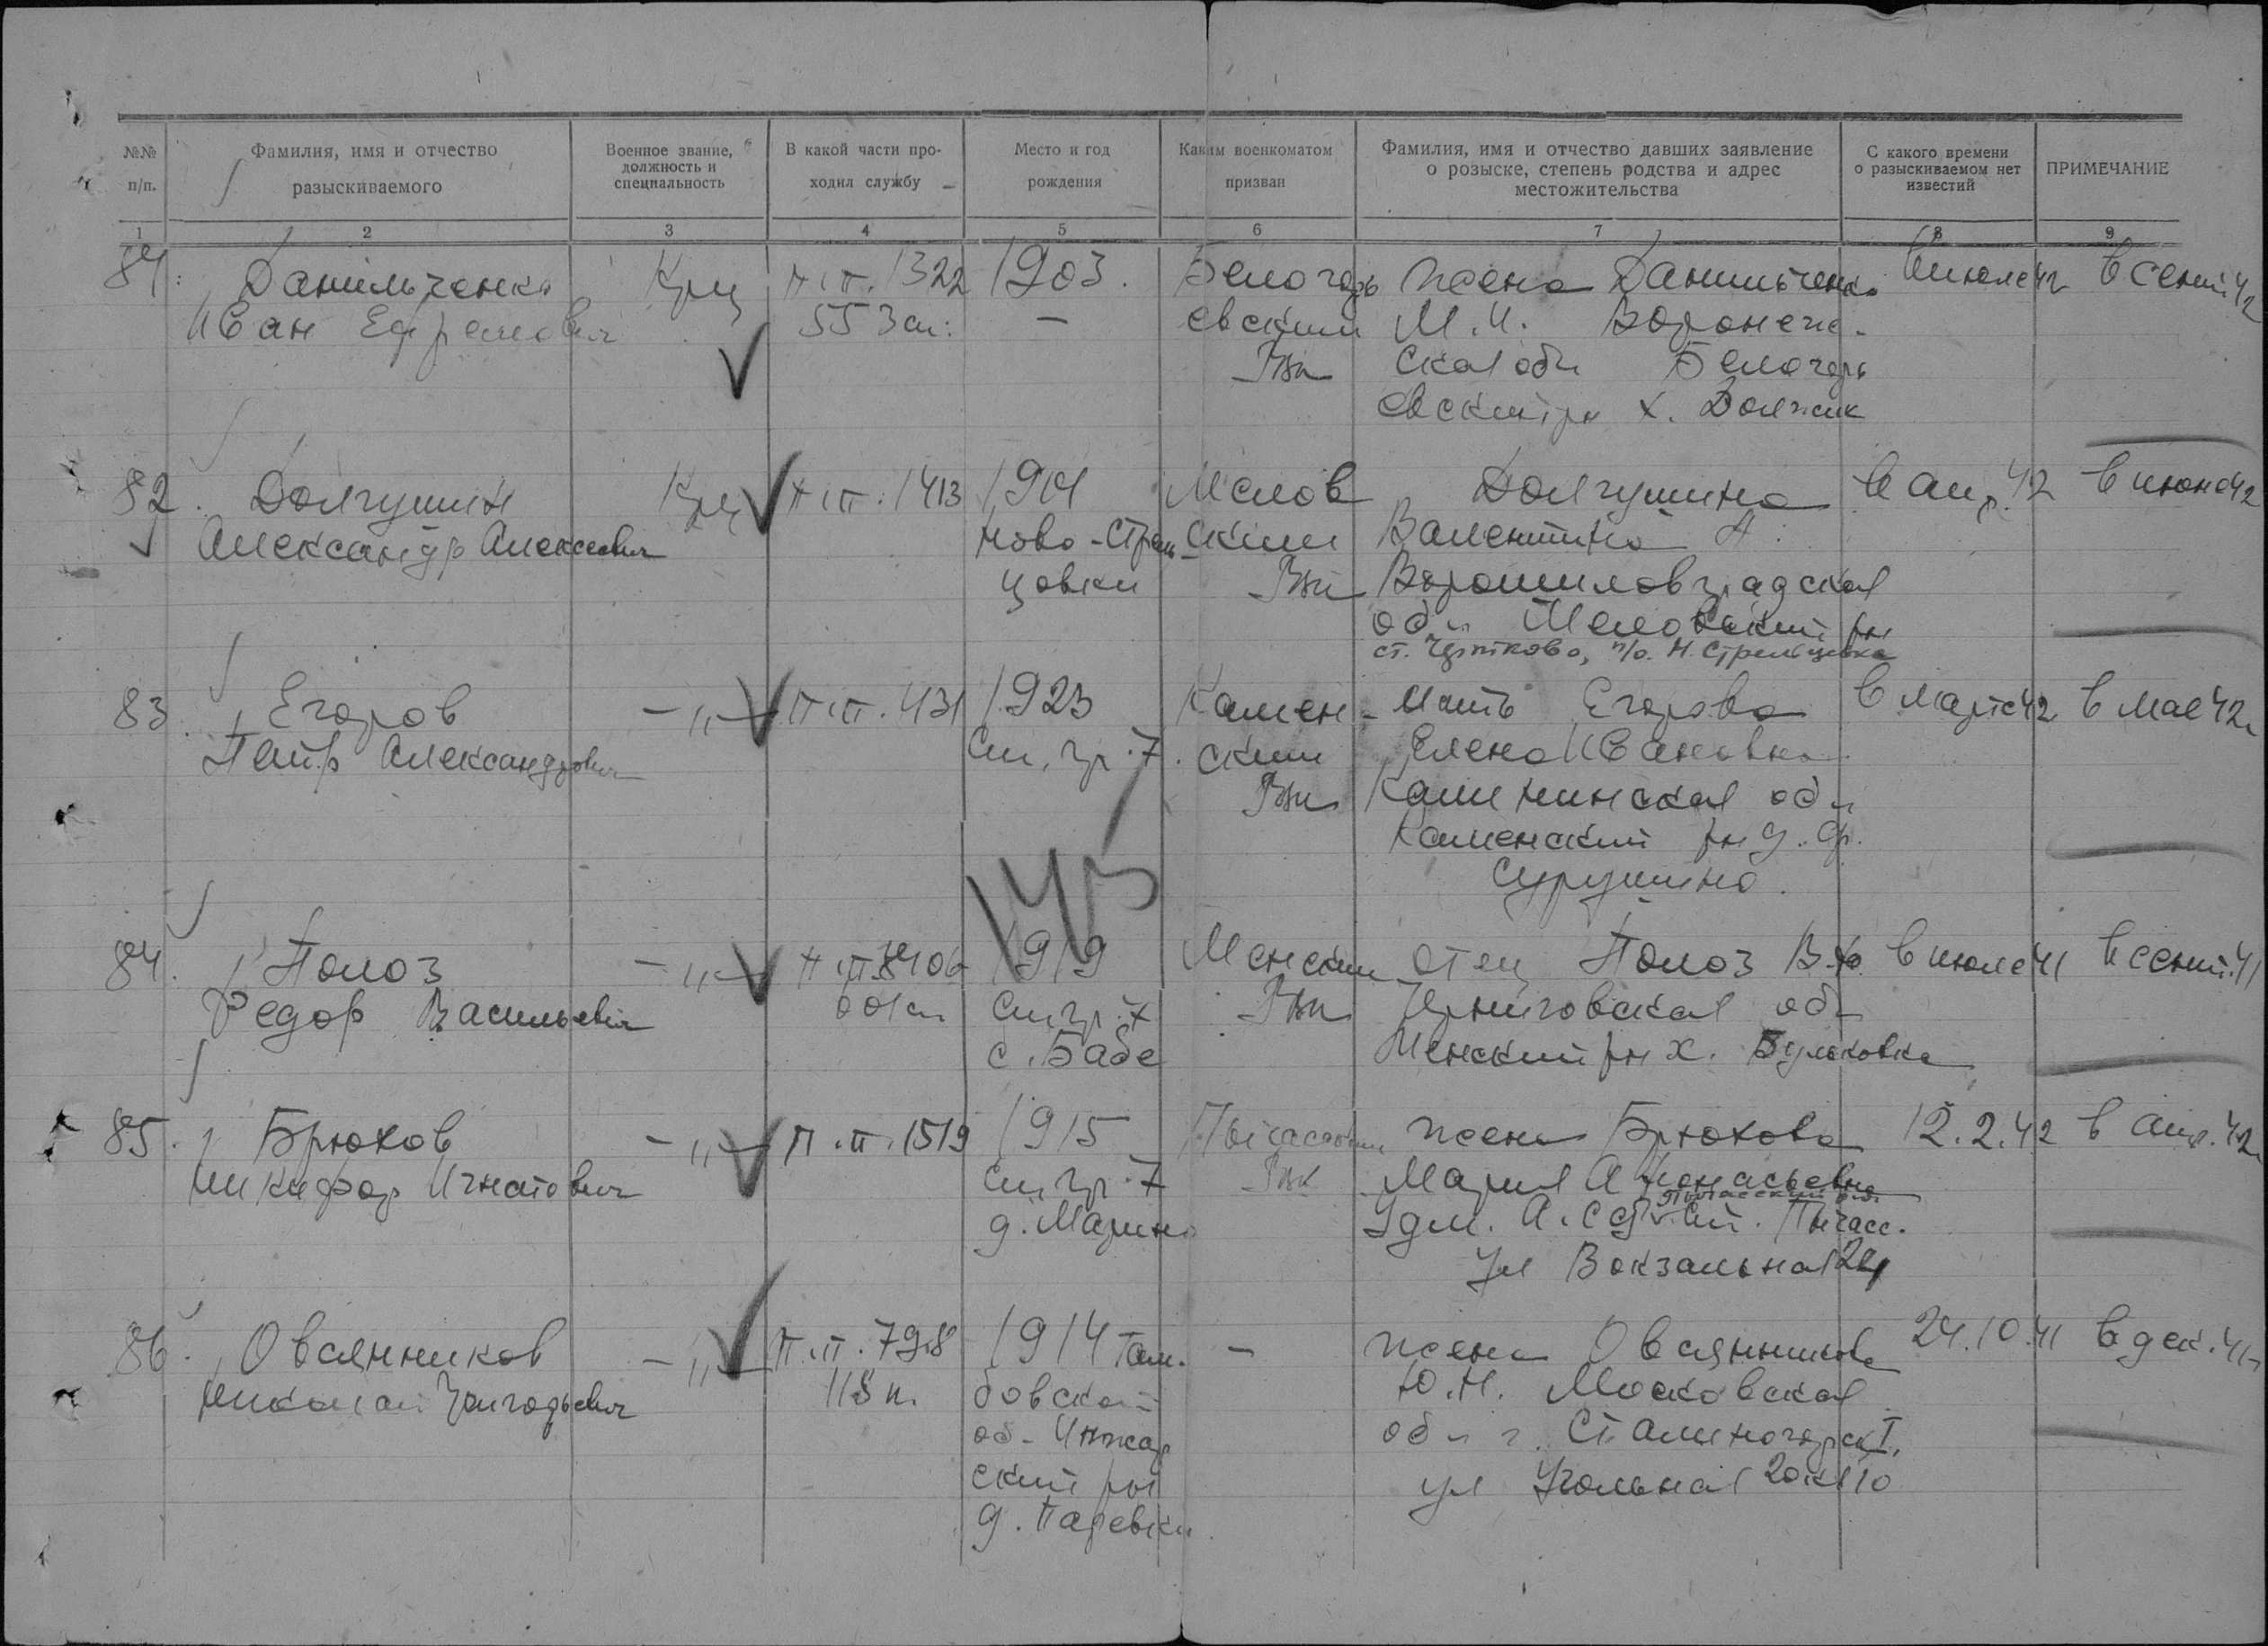 №№ п/п.
Фамилия, имя и отчество разыскиваемого
Военное звание, должность и специальность
В какой части проходил службу
Место и год рождения
Каким военкоматом призван
Фамилия, имя и отчество давших заявление о розыске, степень родства и адрес местожительства
С какого времени о разыскиваемом нет известий
ПРИМЕЧАНИЕ
1 2 3 4 5 6 7 8 9
Данильченко
Иван Ефремович
Крц
п.п. 1322
553 сп.
1903.
—
Белогорь
евский
Рвк
жена Данильченко
М.И. Воронеж-
ская обл Белогорь
евский рн х. Должик
В июле 42
В сент 42
82.
Долгушин
Александр Алексеевич
Крц
п.п. 1413
Ново-Стрель
цовки
Мелов
ский
Рвк
Долгушина
Валентина А.
Ворошиловградская
обл Меловский рн
ст. Чертково, п/о. Н. Стрельцовка
В апр. 42
В июне 42
83
Егоров
Петр Александрович
— „ —
п.п. 431
1923
См. гр. 7.
Камен-
ский
Рвк
Мать Егорова
Елена Ивановна
Калининская обл
Каменский рн д.
В марте 42
В мае 42
143
84.
Полоз
Федор Васильевич
— „ —
1919
См. гр. 7
с. Бабе
Менский
Рвк
отец Полоз В.
Черниговская обл
Менский рн х.
В июле 41
В сент. 41
85.
Брюхов
Никифор Игнатович
— „ —
п.п. 1519
1915
См. гр. 7
д. Марино
Пычасский
Рвк
жена Брюхова
Мария Афонасьевна
Удм. А.ССР ст. Пычасс.
ул Вокзальная 24
12.2.42
В апр. 42
86.
Овсянников
Николай Григорьевич
— „ —
п.п. 798
1914 Там-
бовской
об- Инжав
ский рн
д. Паревки
—
жена Овсянникова
Ю.Н. Московская
обл г. Сталиногорск I,
ул Угольная 20 кв 10
24.10.41
В дек. 41